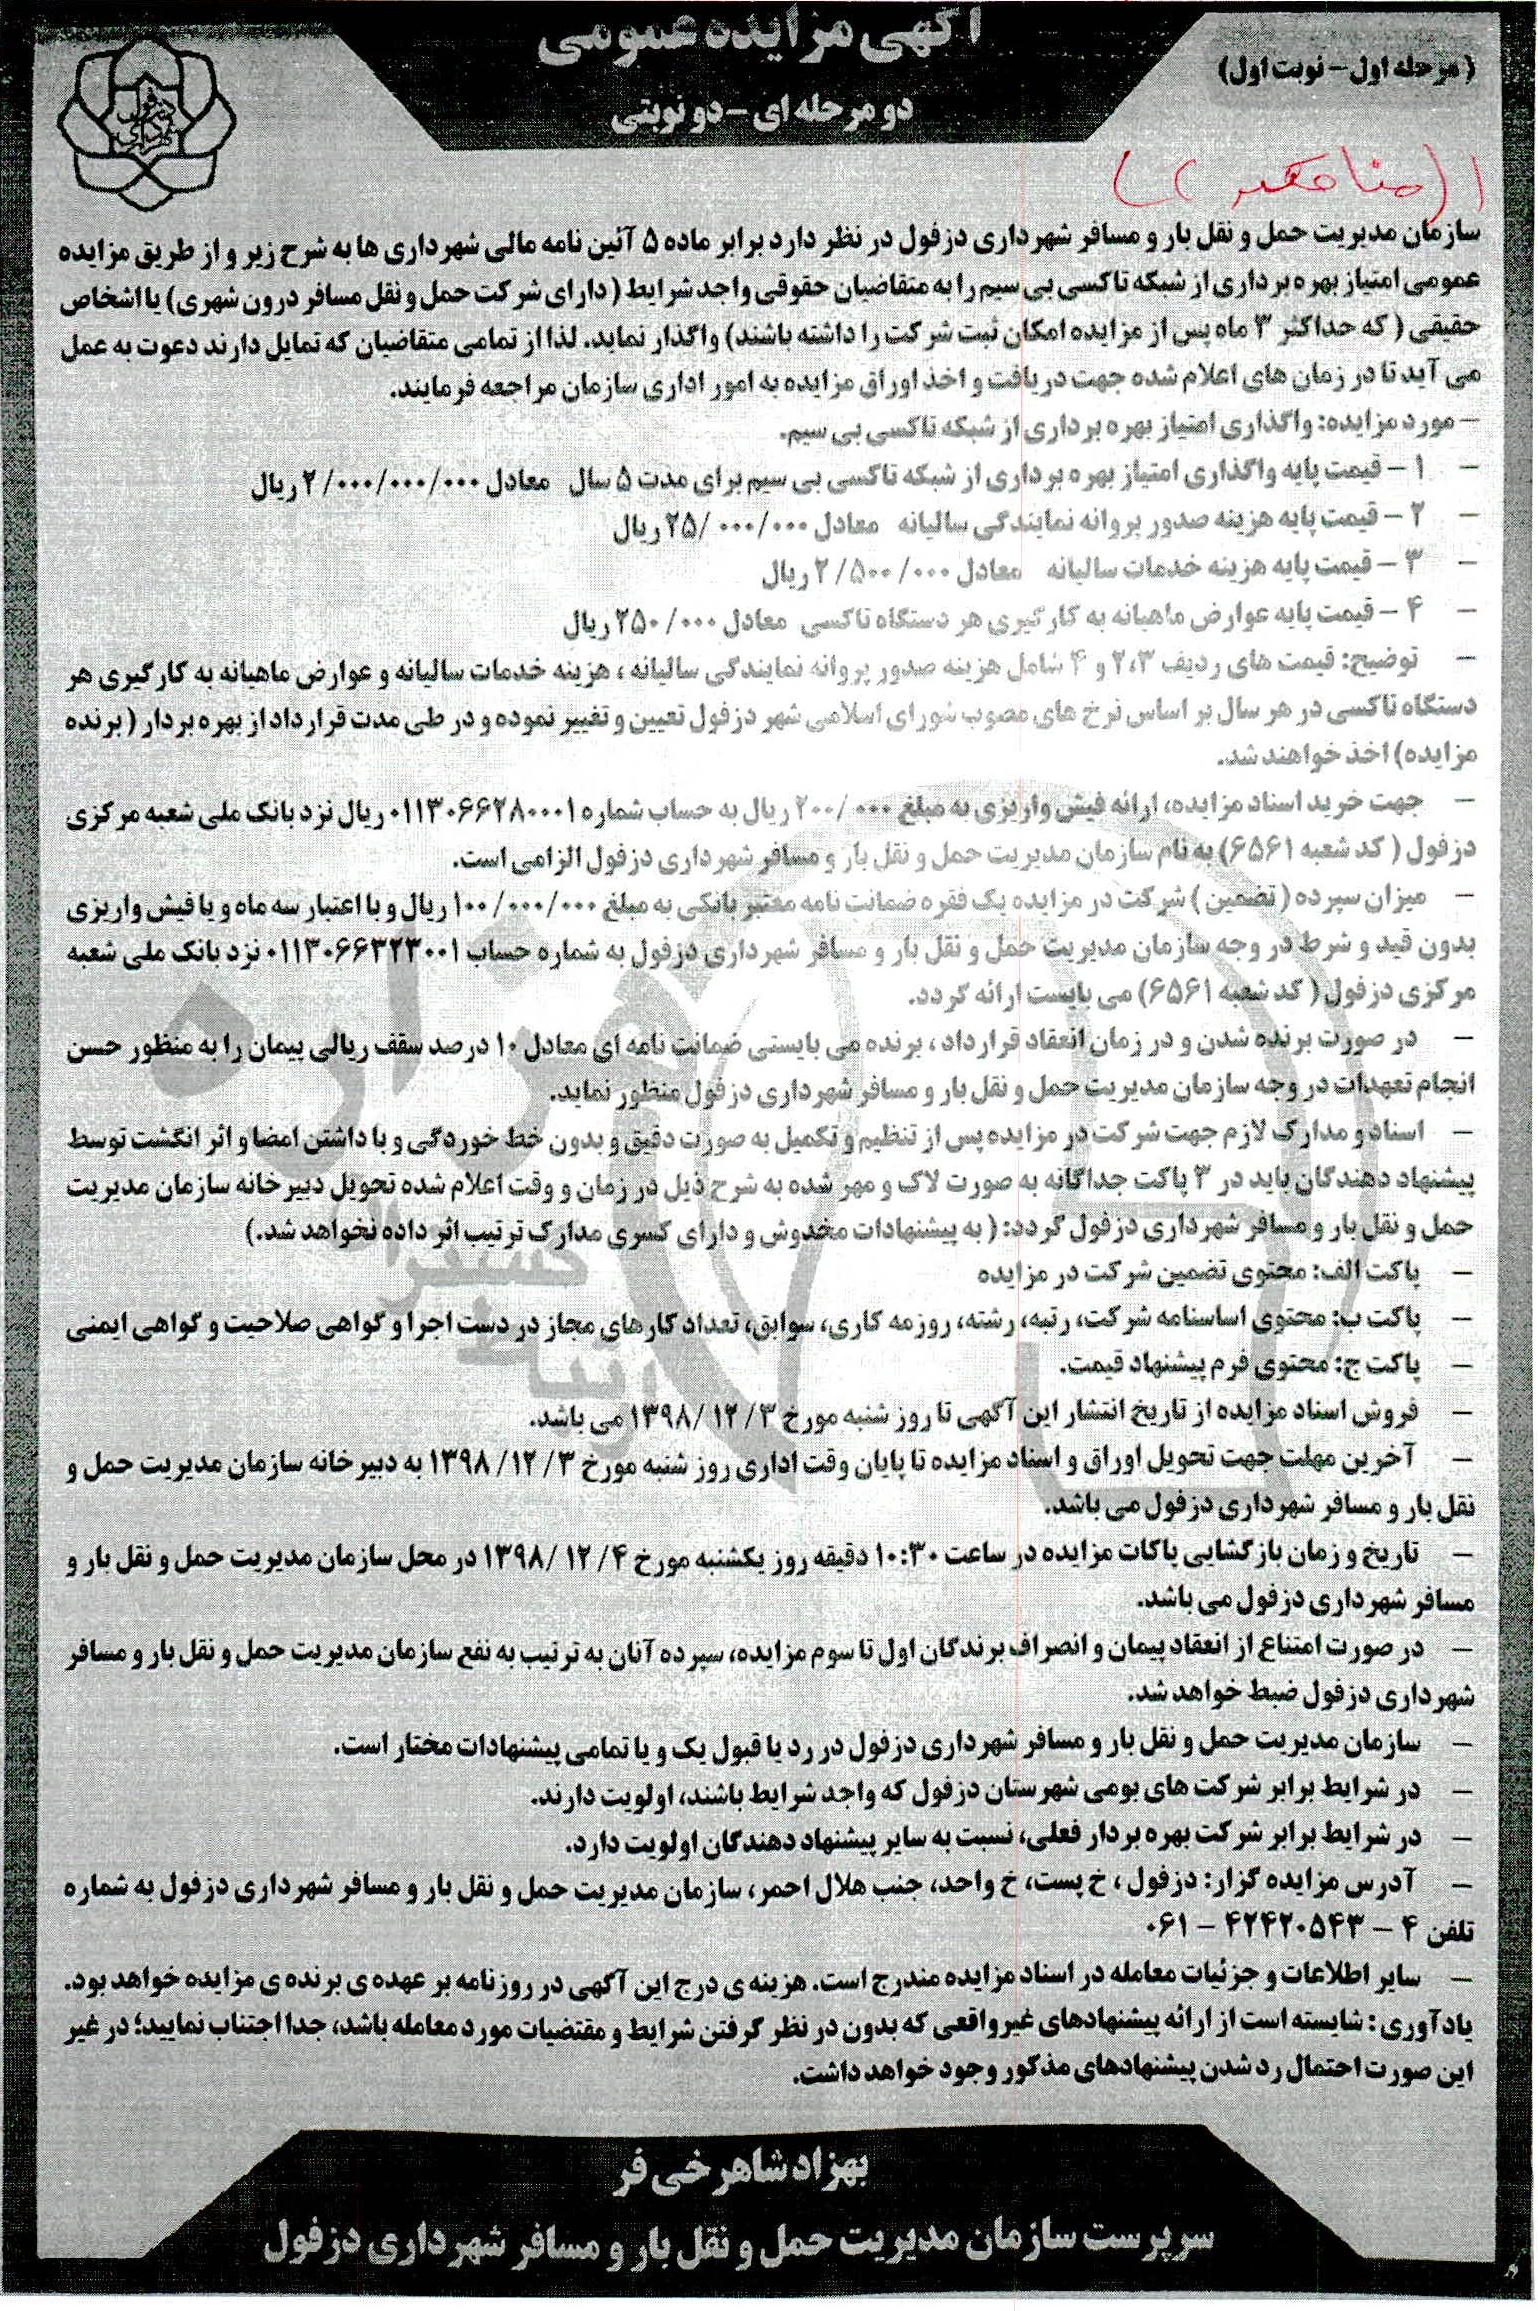 آگهی مزایده عمومی
دو مرحله ای - دو نوبتی
(مرحله اول - نوبت اول)
سازمان مدیریت حمل و نقل بار و مسافر شهرداری دزفول در نظر دارد برابر ماده ۵ آئین نامه مالی شهرداری ها به شرح زیر و از طریق مزایده
عمومی امتیاز بهره برداری از شبکه تاکسی بی سیم را به متقاضیان حقوقی واجد شرایط (دارای شرکت حمل و نقل مسافر درون شهری) یا اشخاص
حقیقی ( که حداکثر ۳ ماه پس از مزایده امکان ثبت شرکت را داشته باشند) واگذار نماید. لذا از تمامی متقاضیان که تمایل دارند دعوت به عمل
می آید تا در زمان های اعلام شده جهت دریافت و اخذ اوراق مزایده به امور اداری سازمان مراجعه فرمایند.
- مورد مزایده: واگذاری امتیاز بهره برداری از شبکه تاکسی بی سیم.
- ۱ - قیمت پایه واگذاری امتیاز بهره برداری از شبکه تاکسی بی سیم برای مدت ۵ سال معادل ۲/۰۰۰/۰۰۰/۰۰۰ ریال
- ۲ - قیمت پایه هزینه صدور پروانه نمایندگی سالیانه معادل ۲۵/۰۰۰/۰۰۰ ریال
- ۳ - قیمت پایه هزینه خدمات سالیانه معادل ۲/۵۰۰/۰۰۰ ریال
- ۴ - قیمت پایه عوارض ماهیانه به کارگیری هر دستگاه تاکسی معادل ۲۵۰/۰۰۰ ریال
- توضیح: قیمت های ردیف ۲،۳ و ۴ شامل هزینه صدور پروانه نمایندگی سالیانه ، هزینه خدمات سالیانه و عوارض ماهیانه به کارگیری هر
دستگاه تاکسی در هر سال بر اساس نرخ های مصوب شورای اسلامی شهر دزفول تعیین و تغییر نموده و در طی مدت قرارداد از بهره بردار (برنده
مزایده) اخذ خواهند شد.
- جهت خرید اسناد مزایده، ارائه فیش واریزی به مبلغ ۲۰۰/۰۰۰ ریال به حساب شماره ۰۱۱۳۰۶۶۲۸۰۰۰۱ ریال نزد بانک ملی شعبه مرکزی
دزفول ( کد شعبه ۶۵۶۱) به نام سازمان مدیریت حمل و نقل بار و مسافر شهرداری دزفول الزامی است.
- میزان سپرده ( تضمین ) شرکت در مزایده یک فقره ضمانت نامه معتبر بانکی به مبلغ ۱۰۰/۰۰۰/۰۰۰ ریال و با اعتبار سه ماه و یا فیش واریزی
بدون قید و شرط در وجه سازمان مدیریت حمل و نقل بار و مسافر شهرداری دزفول به شماره حساب ۰۱۱۳۰۶۶۳۲۳۰۰۱ نزد بانک ملی شعبه
مرکزی دزفول ( کد شعبه ۶۵۶۱) می بایست ارائه گردد.
- در صورت برنده شدن و در زمان انعقاد قرارداد ، برنده می بایستی ضمانت نامه ای معادل ۱۰ درصد سقف ریالی پیمان را به منظور حسن
انجام تعهدات در وجه سازمان مدیریت حمل و نقل بار و مسافر شهرداری دزفول منظور نماید.
- اسناد و مدارک لازم جهت شرکت در مزایده پس از تنظیم و تکمیل به صورت دقیق و بدون خط خوردگی و با داشتن امضا و اثر انگشت توسط
پیشنهاد دهندگان باید در ۳ پاکت جداگانه به صورت لاک و مهر شده به شرح ذیل در زمان و وقت اعلام شده تحویل دبیرخانه سازمان مدیریت
حمل و نقل بار و مسافر شهرداری دزفول گردد: ( به پیشنهادات مخدوش و دارای کسری مدارک ترتیب اثر داده نخواهد شد.)
- پاکت الف: محتوی تضمین شرکت در مزایده
- پاکت ب: محتوی اساسنامه شرکت، رتبه، رشته، روزمه کاری، سوابق، تعداد کارهای مجاز در دست اجرا و گواهی صلاحیت و گواهی ایمنی
- پاکت ج: محتوی فرم پیشنهاد قیمت.
- فروش اسناد مزایده از تاریخ انتشار این آگهی تا روز شنبه مورخ ۳ /۱۲ /۱۳۹۸ می باشد.
- آخرین مهلت جهت تحویل اوراق و اسناد مزایده تا پایان وقت اداری روز شنبه مورخ ۳ /۱۲/ ۱۳۹۸ به دبیرخانه سازمان مدیریت حمل و
نقل بار و مسافر شهرداری دزفول می باشد.
- تاریخ و زمان بازگشایی پاکات مزایده در ساعت ۱۰:۳۰ دقیقه روز یکشنبه مورخ ۴/ ۱۲ /۱۳۹۸ در محل سازمان مدیریت حمل و نقل بار و
مسافر شهرداری دزفول می باشد.
- در صورت امتناع از انعقاد پیمان و انصراف برندگان اول تا سوم مزایده، سپرده آنان به ترتیب به نفع سازمان مدیریت حمل و نقل بار و مسافر
شهرداری دزفول ضبط خواهد شد.
- سازمان مدیریت حمل و نقل بار و مسافر شهرداری دزفول در رد یا قبول یک و یا تمامی پیشنهادات مختار است.
- در شرایط برابر شرکت های بومی شهرستان دزفول که واجد شرایط باشند، اولویت دارند.
- در شرایط برابر شرکت بهره بردار فعلی، نسبت به سایر پیشنهاد دهندگان اولویت دارد.
- آدرس مزایده گزار: دزفول ، خ پست، خ واحد، جنب هلال احمر، سازمان مدیریت حمل و نقل بار و مسافر شهرداری دزفول به شماره
تلفن ۴ - ۴۲۴۲۰۵۴۳ - ۰۶۱
- سایر اطلاعات و جزئیات معامله در اسناد مزایده مندرج است. هزینه ی درج این آگهی در روزنامه بر عهده ی برنده ی مزایده خواهد بود.
یادآوری : شایسته است از ارائه پیشنهادهای غیرواقعی که بدون در نظر گرفتن شرایط و مقتضیات مورد معامله باشد، جدا اجتناب نمایید؛ در غیر
این صورت احتمال رد شدن پیشنهادهای مذکور وجود خواهد داشت.
بهزاد شاهرخی فر
سرپرست سازمان مدیریت حمل و نقل بار و مسافر شهرداری دزفول